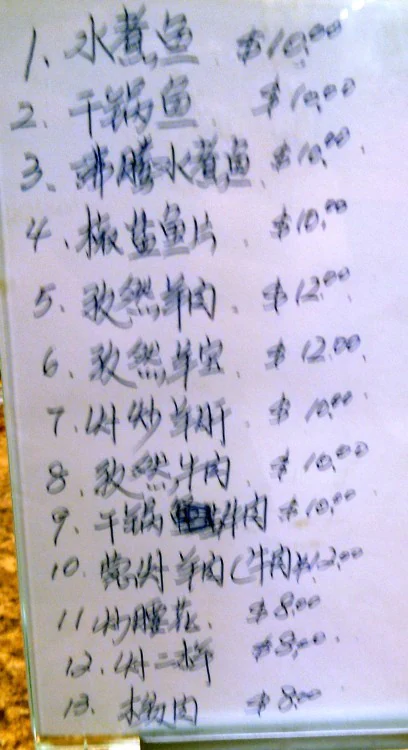 1、水煮鱼 $10.00
2、干锅鱼 $10.00
3、沸腾水煮鱼 $10.00
4、椒盐鱼片 $10.00
5、孜然羊肉 $12.00
6、孜然羊宝 $12.00
7、爆炒羊肝 $10.00
8、孜然牛肉 $10.00
9、干锅牛肉 $10.00
10、羊肉(牛肉 $12.00
11 炒腰花 $8.00
12、二样 $8.00
13、肉 $8.00